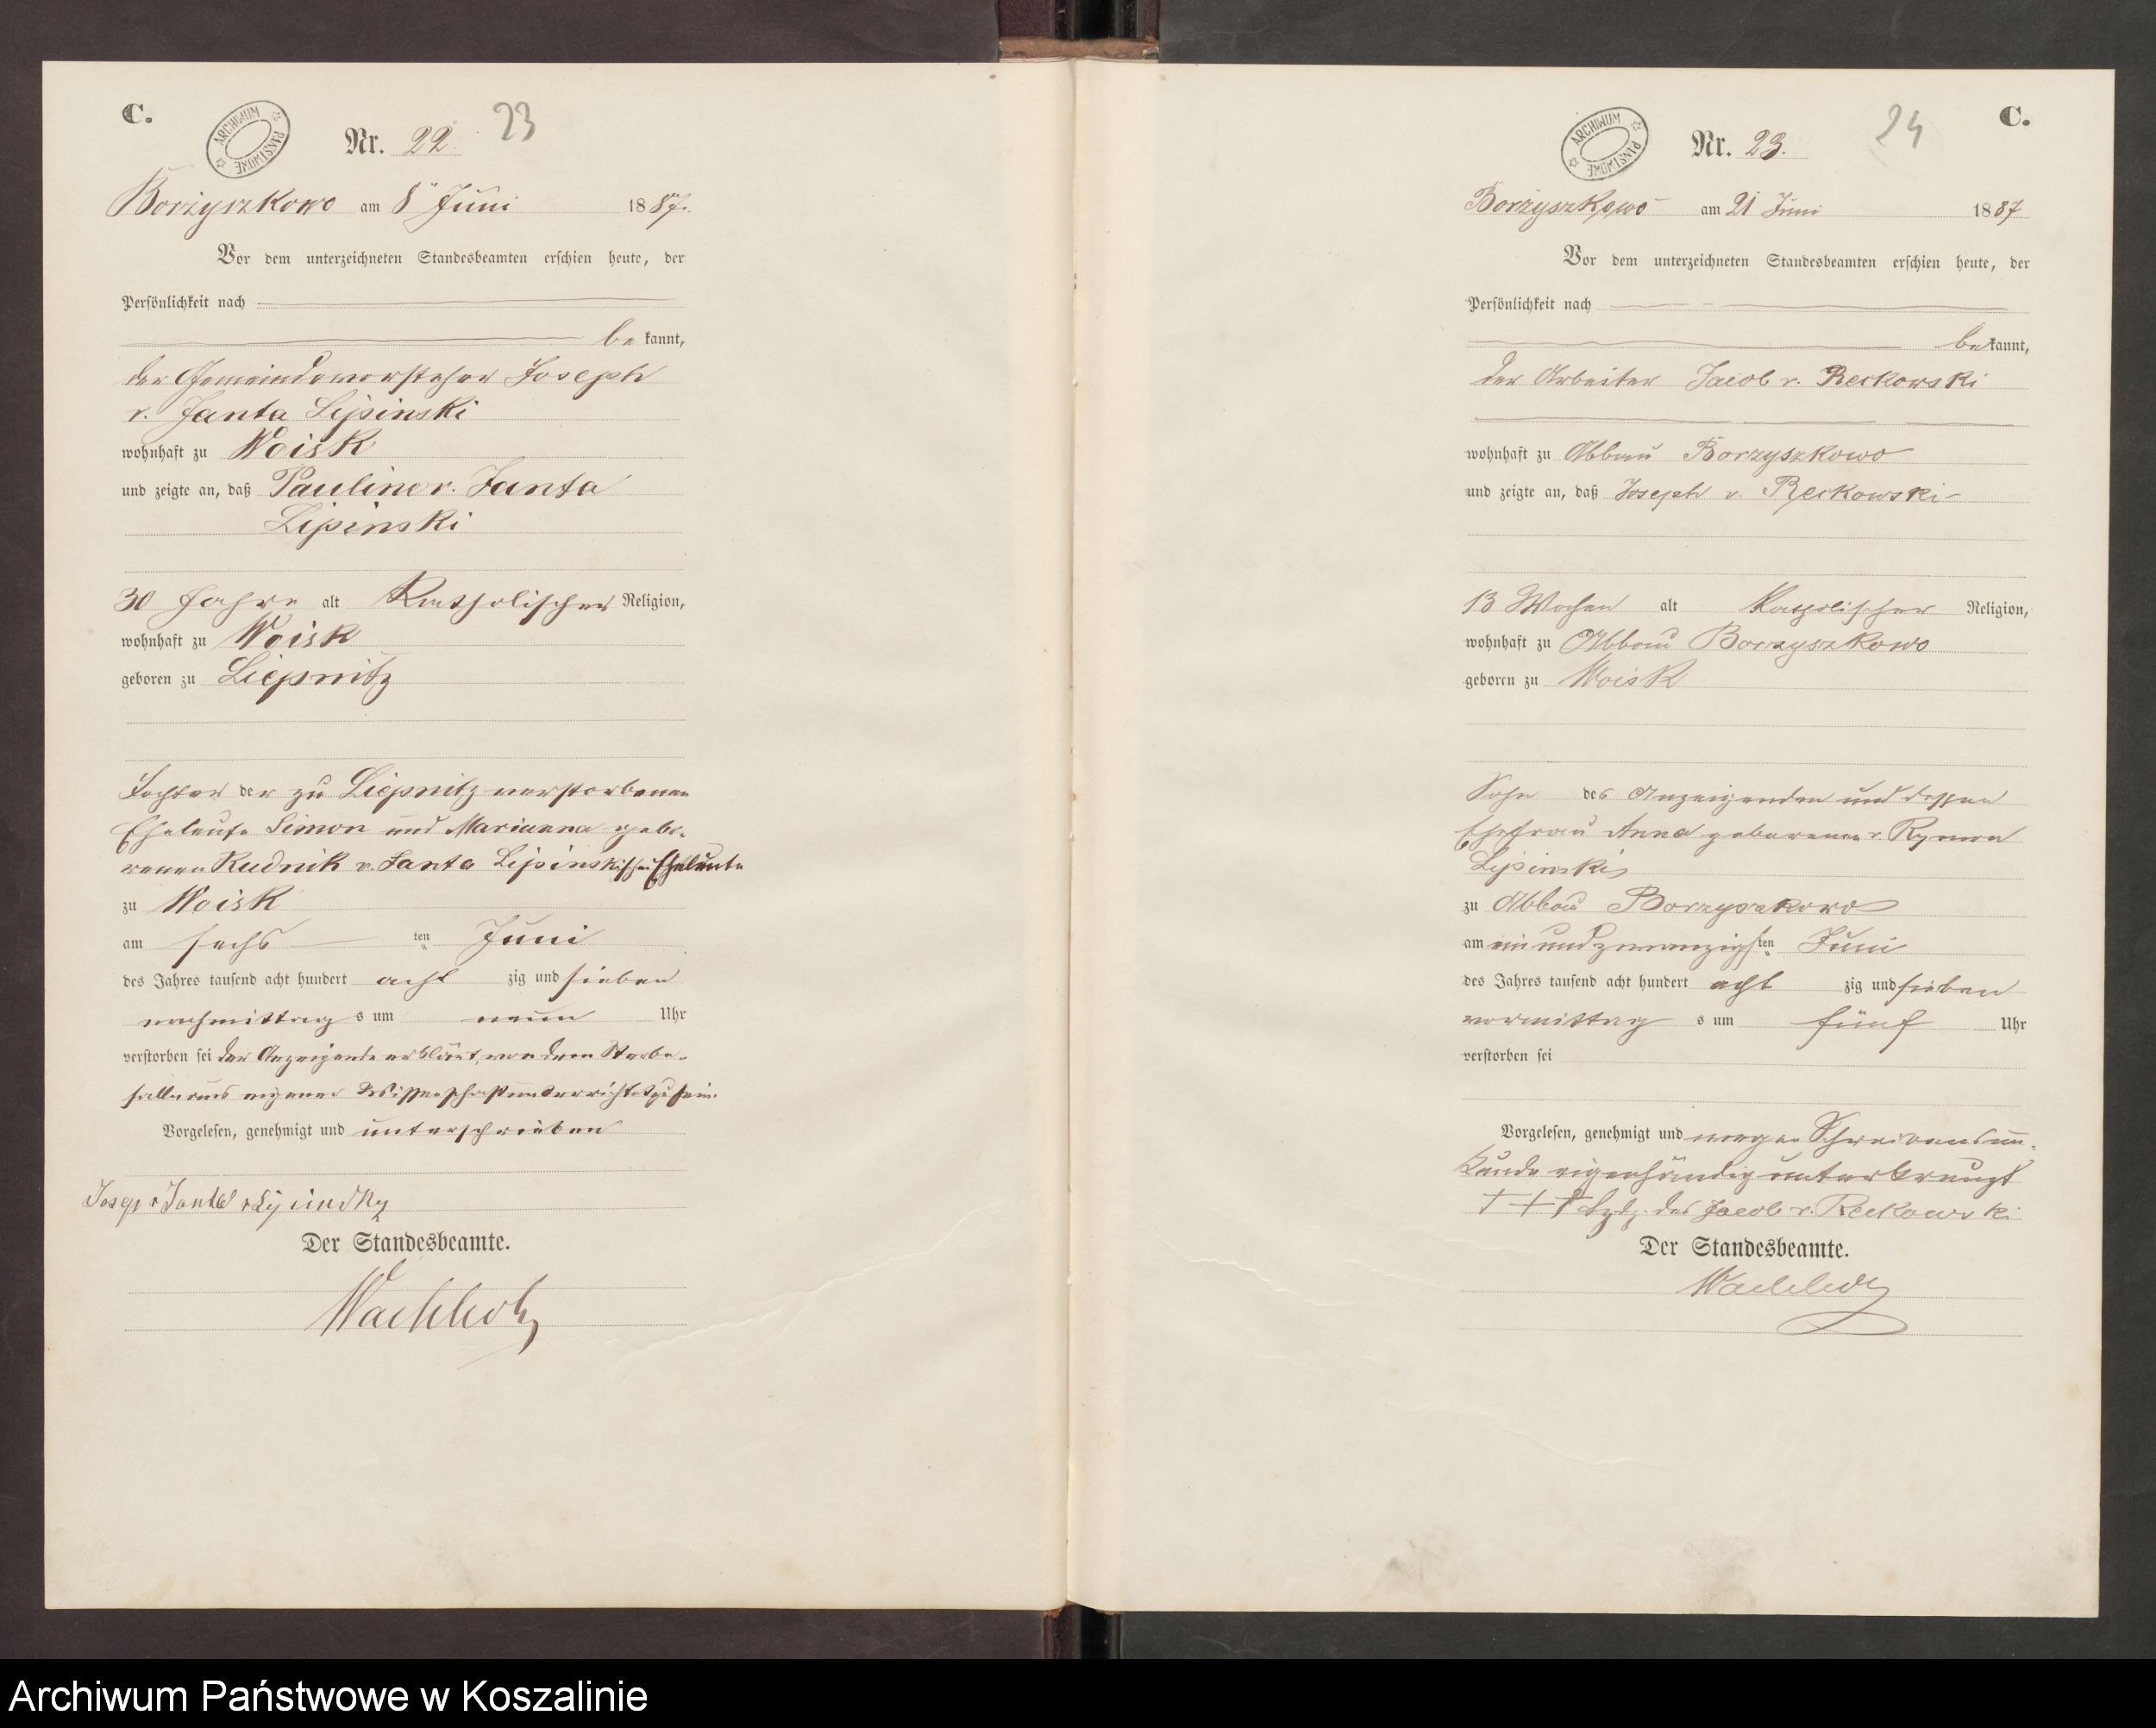 C.
ARCHIWUM PAŃSTWOWE
Nr. 22.
23
Borzyszkowo am 8 Juni 1887.
Vor dem unterzeichneten Standesbeamten erschien heute, der
Persönlichkeit nach
be kannt,
der Gemeindevorsteher Joseph
v. Janta Lipinski
wohnhaft zu Woisk
und zeigte an, daß Pauline v. Janta
Lipinski
30 Jahre alt Katholischer Religion,
wohnhaft zu Woisk
geboren zu Liepnitz
Tochter der zu Liepnitz verstorbenen
Eheleute Simon und Marianna gebo-
renen Rudnik v. Janta Lipinskischen Eheleute
zu Woisk
am sechs ten Juni
des Jahres tausend acht hundert acht zig und sieben
nachmittag s um neun Uhr
verstorben sei der Anzeigende erklärt, von dem Sterbe-
falle aus eigener Wissenschaft unterrichtet zu sein.
Vorgelesen, genehmigt und unterschrieben
Josep v Janta v Lipinsky
Der Standesbeamte.
Wachholz
C.
ARCHIWUM PAŃSTWOWE
Nr. 23.
24
Borzyszkowo am 21 Juni 1887
Vor dem unterzeichneten Standesbeamten erschien heute, der
Persönlichkeit nach
be kannt,
der Arbeiter Jacob v. Reckowski
wohnhaft zu Abbau Borzyszkowo
und zeigte an, daß Joseph v. Reckowski
13 Wochen alt Katholischer Religion,
wohnhaft zu Abbau Borzyszkowo
geboren zu Woisk
Sohn des Anzeigenden und dessen
Ehefrau Anna geborenen v. Rymon
Lipinski
zu Abbau Borzyszkowo
am ein und zwanzigs ten Juni
des Jahres tausend acht hundert acht zig und sieben
vormittag s um fünf Uhr
verstorben sei
Vorgelesen, genehmigt und wegen Schreibensun-
kunde eigenhändig unterkreuzt
+++ Hdz. des Jacob v. Reckowski
Der Standesbeamte.
Wachholz
Archiwum Państwowe w Koszalinie